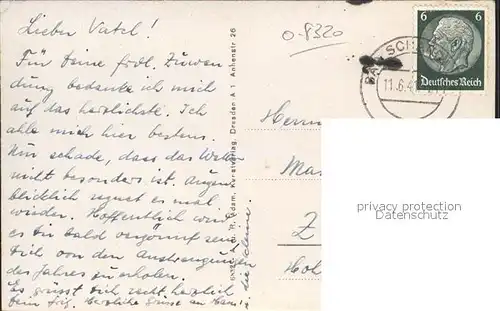 Lieber Vatel!
Für Deine frdl. Zuwen
dung bedanke ich mich
auf das herzlichste. Ich
alle mich hier bestens.
Nur schade, dass das Wetter
nicht besonders ist. Augen
blicklich regnet es mal
wieder. Hoffentlich wird
es Dir bald vergönnt sein
Dich von den Anstrengungen
des Jahres zu erholen.
Es grüsst Dich recht herzlich
Herzliche Grüsse an Hans!
die kleine.
A. u. R. Adam, Kunstverlag, Dresden A 1 Annenstr 26
0-8320
BAD SCH
11.6.4
6 6
Deutsches Reich
Herrn
Ma
Z
Hoh
privacy protection
Datenschutz